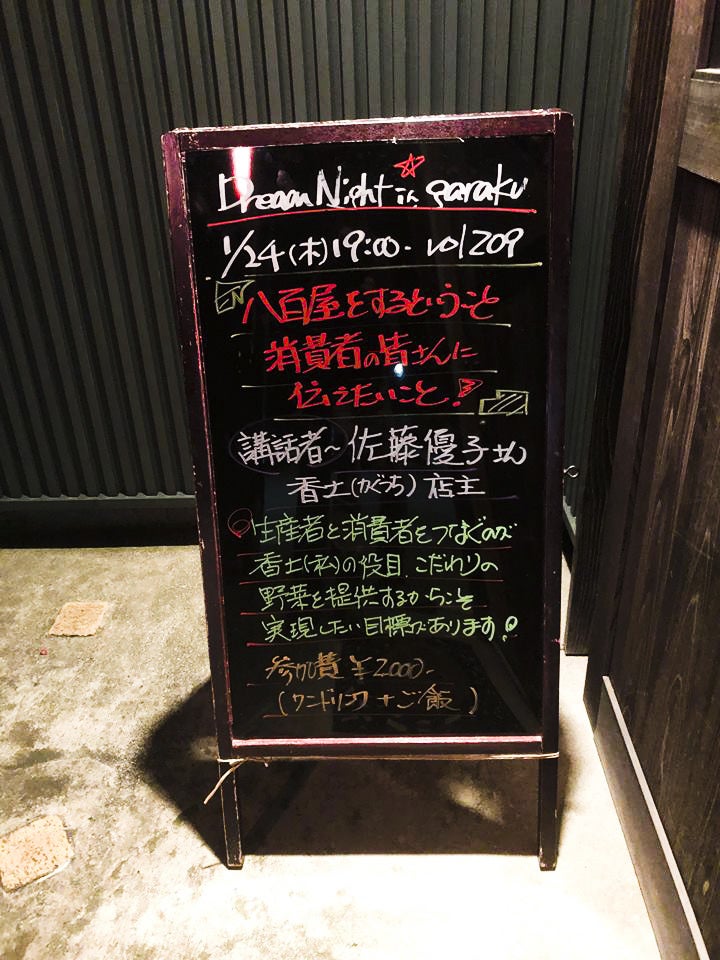 Dream Night in garaku
1/24(木)19:00- vol209
八百屋をするということ
消費者の皆さんに
伝えたいこと!
講話者~佐藤優子さん
香土(かぐつち)店主
生産者と消費者をつなぐのが
香土(私)の役目、こだわりの
野菜を提供するからこそ
実現したい目標があります!
参加費 ¥2000-
(ワンドリンク+ご飯)